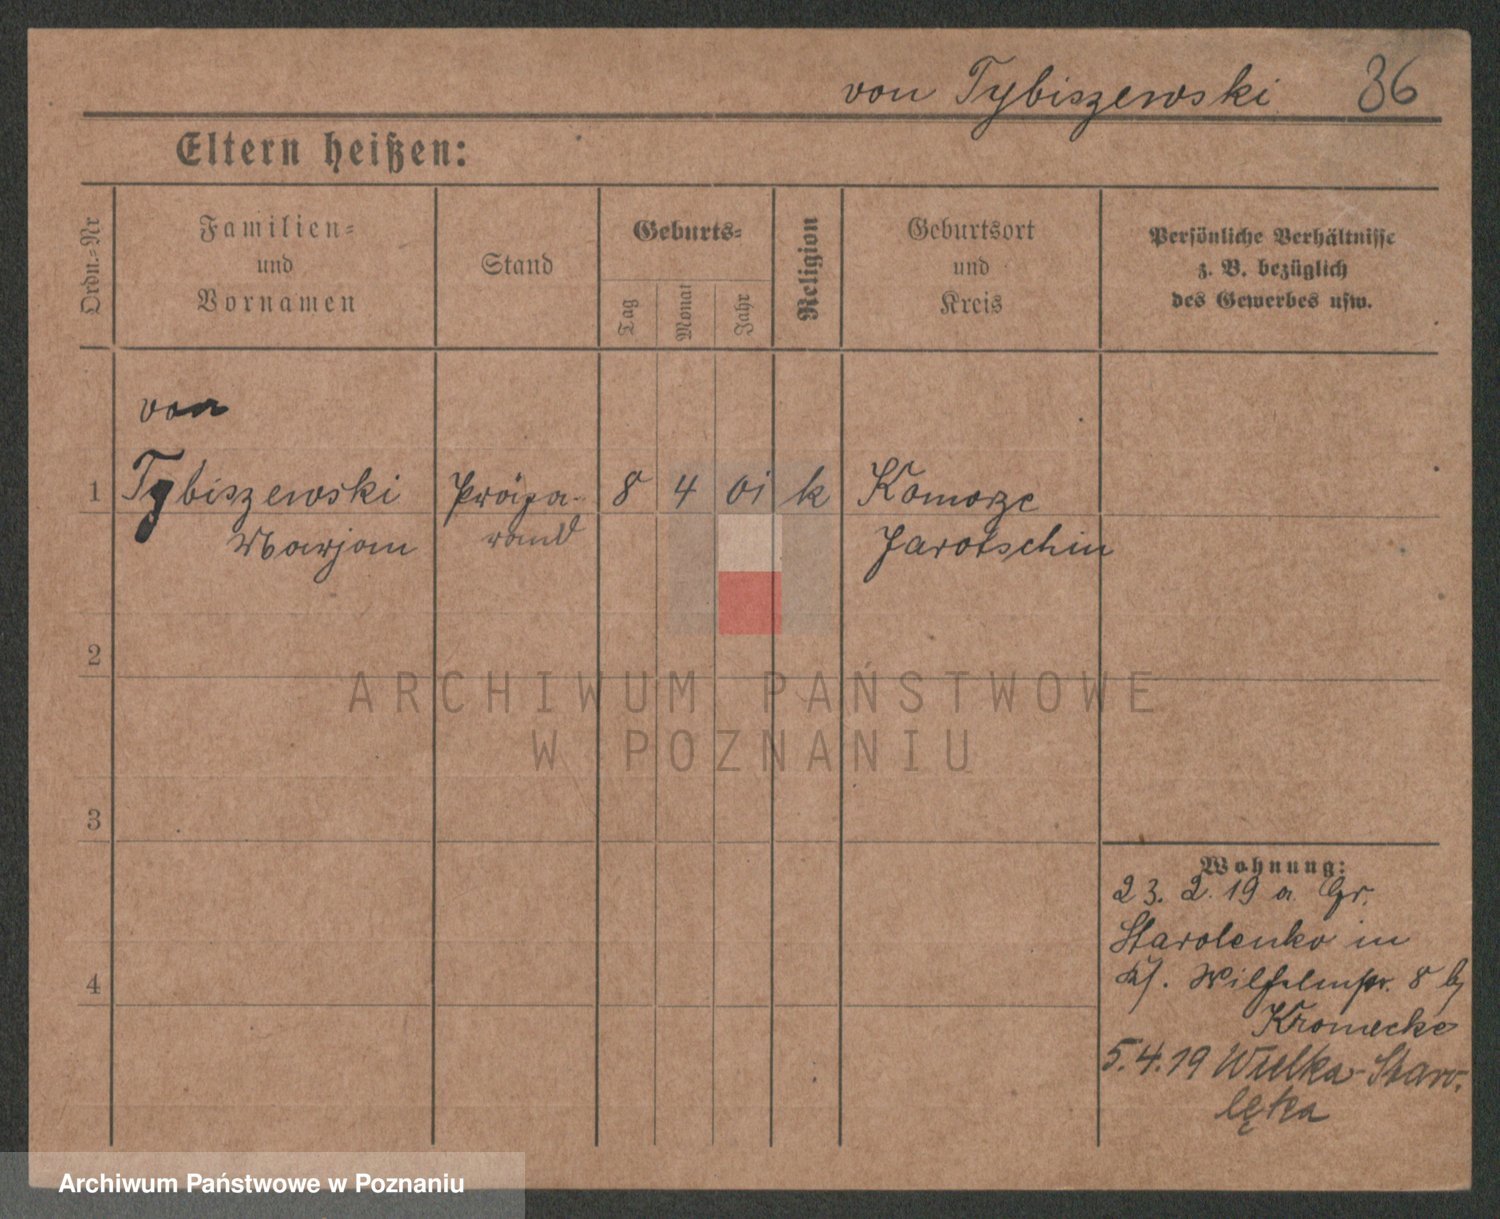 von Tybiszewski 36
Eltern heißen:
Ordn.-Nr
Familien-
und
Vornamen
Stand
Geburts-
Tag
Monat
Jahr
Religion
Geburtsort
und
Kreis
Persönliche Verhältnisse
z. B. bezüglich
des Gewerbes usw.
von
1 Tybiszewski Präpa- 8 4 01 k Komorze
Marjan rand Jarotschin
2
ARCHIWUM PAŃSTWOWE
W POZNANIU
3
Wohnung:
23. 2. 19 a. Gr.
Starolenka in
Wilhelmstr. 8 b/
Kronecke
4
5.4.19 Wielka-Staro-
lęka
Archiwum Państwowe w Poznaniu